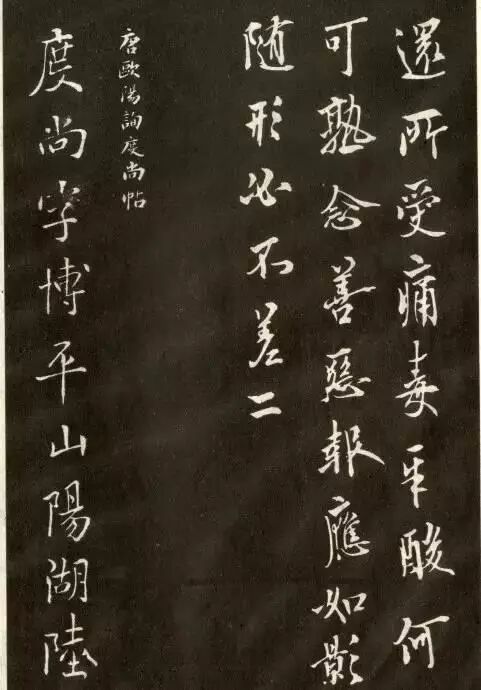 還所受痛毒辛酸何
可熟念善惡報應如影
随形必不差二
唐歐陽詢度尚帖
度尚字博平山陽湖陸